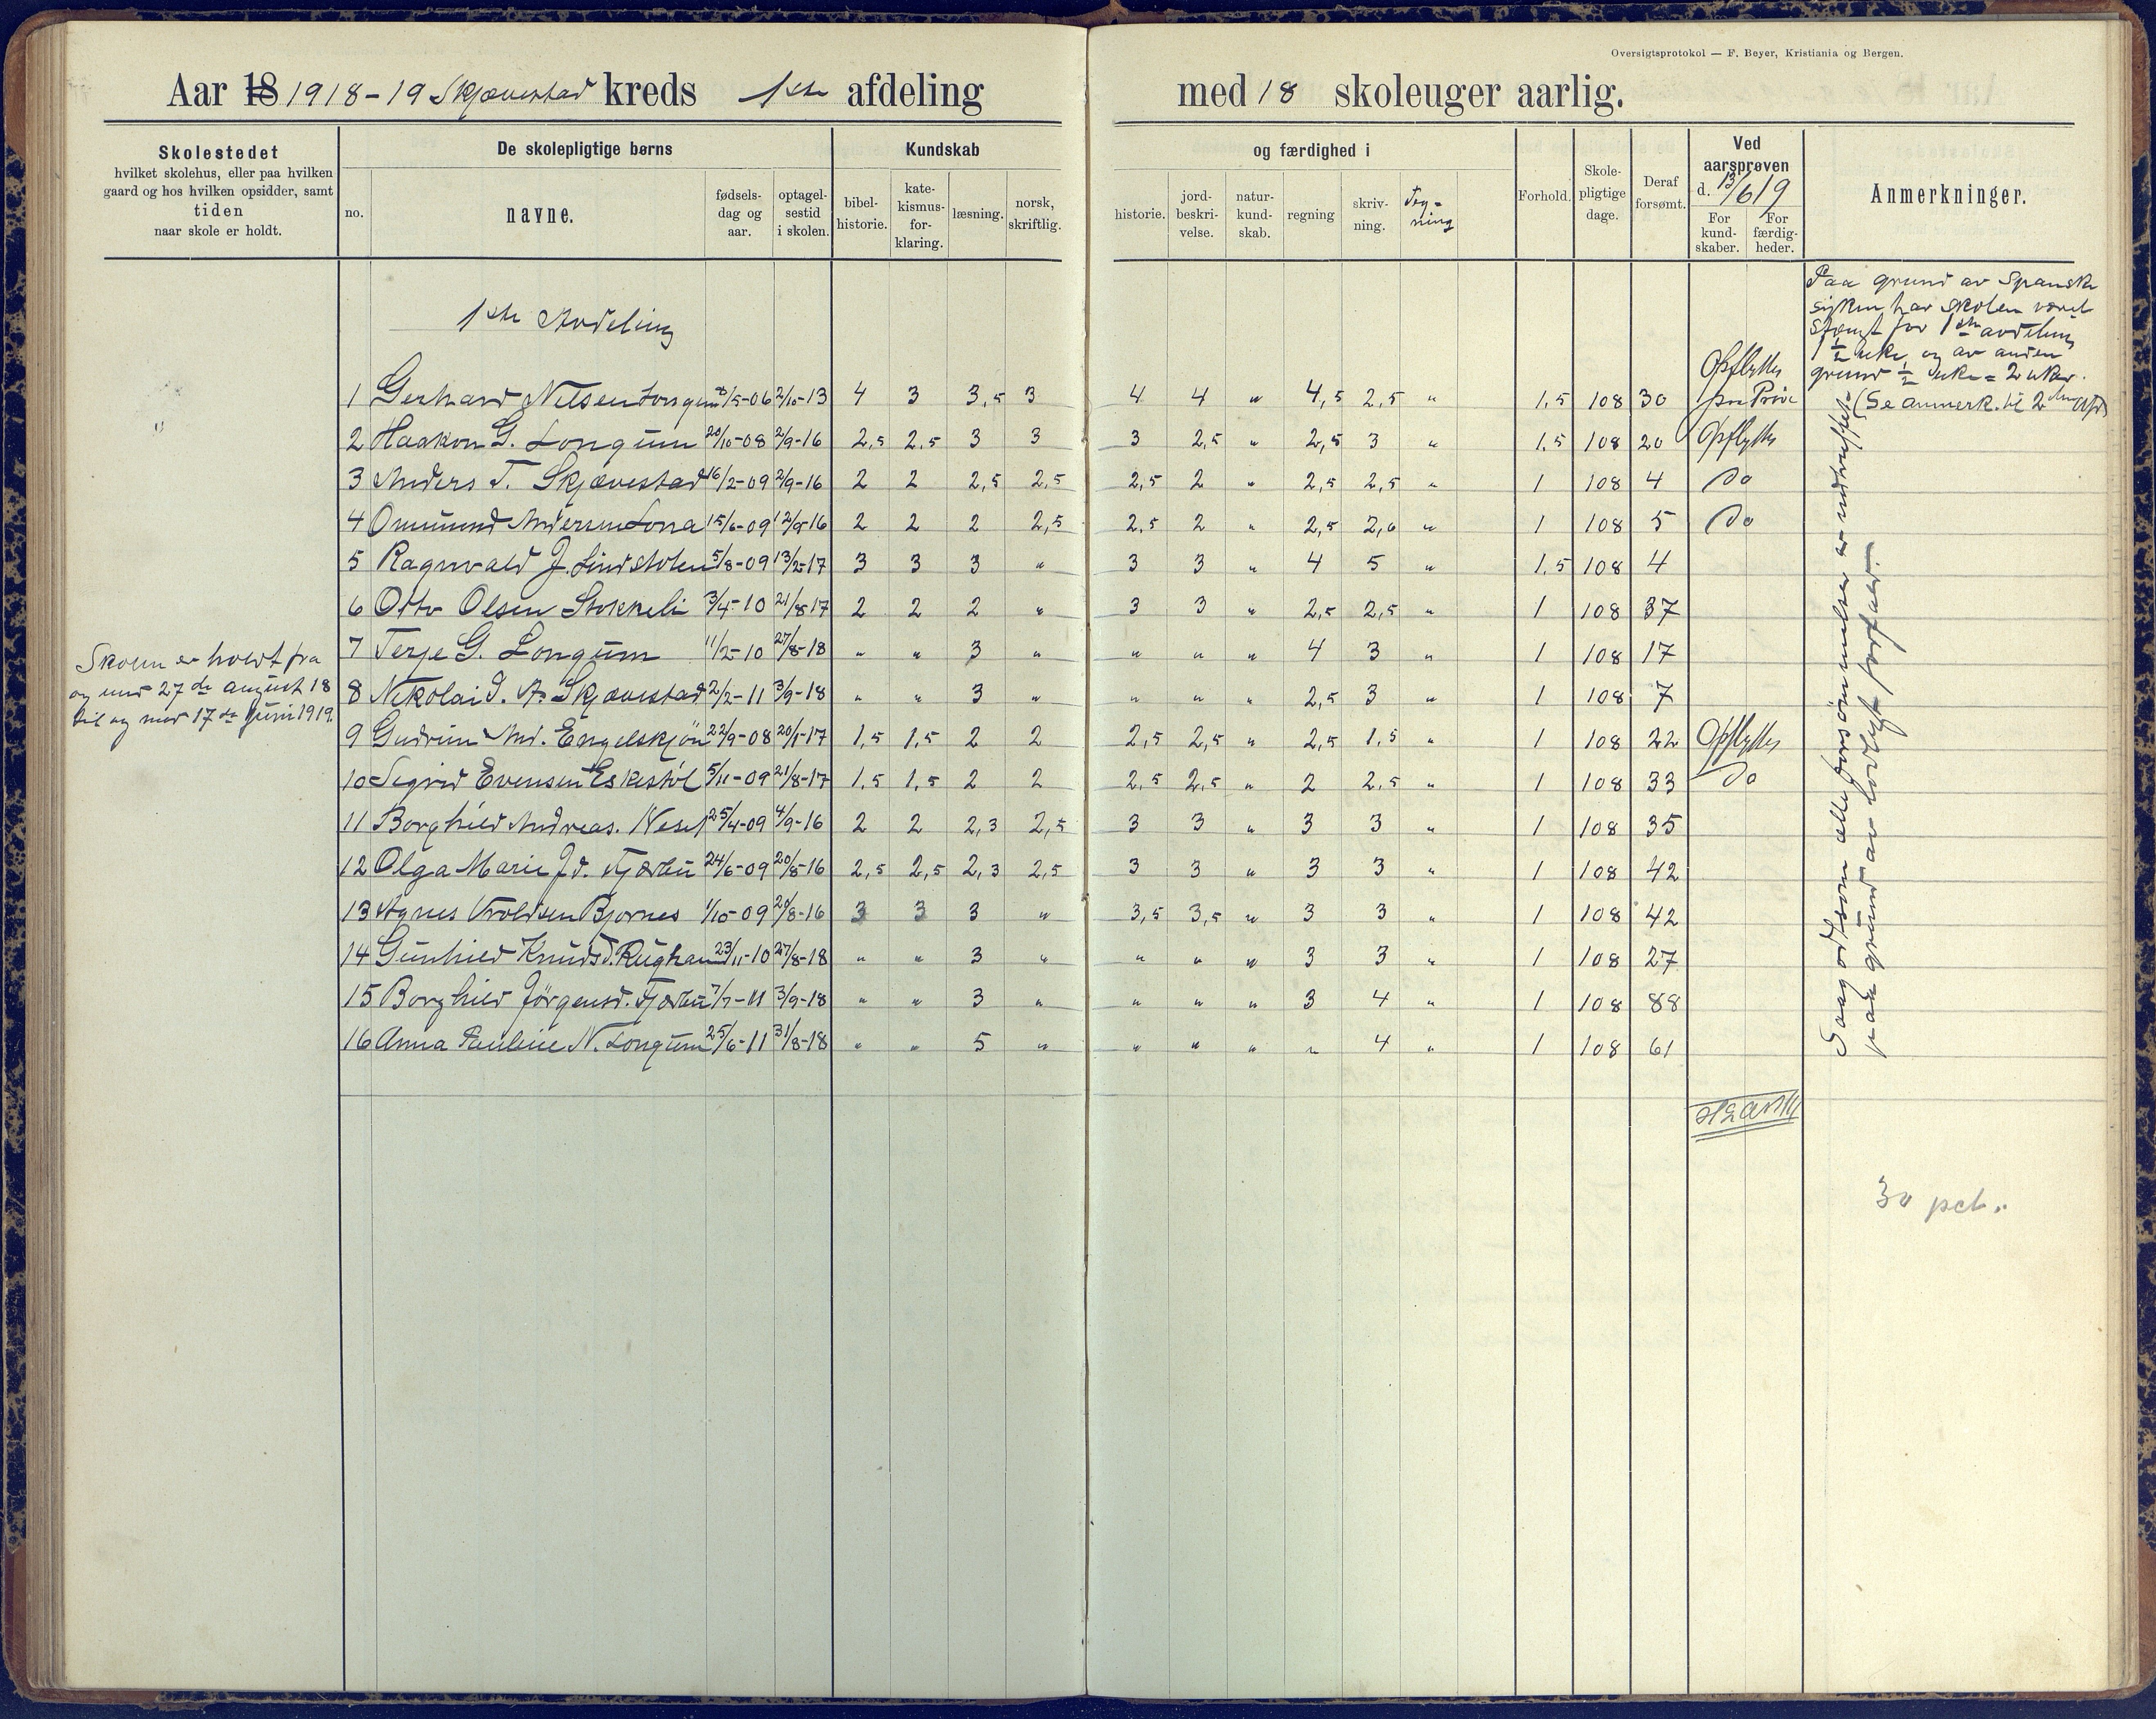 Oversigtsprotokol — F. Beyer, Kristiania og Bergen.
Aar 18 1918-19 Skjævestad kreds 1ste afdeling med 18 skoleuger aarlig.
Skolestedet
hvilket skolehus, eller paa hvilken
gaard og hos hvilken opsidder, samt
tiden
naar skole er holdt.
De skolepligtige børns
no.
navne.
fødsels-
dag og
aar.
optagel-
sestid
i skolen.
Kundskab
bibel-
historie.
kate-
kismus-
for-
klaring.
læsning.
norsk,
skriftlig.
og færdighed i
historie.
jord-
beskri-
velse.
natur-
kund-
skab.
regning
skriv-
ning.
Teg-
ning
Forhold.
Skole-
pligtige
dage.
Deraf
forsømt.
Ved
aarsprøven
d. 13/6 19
For
kund-
skaber.
For
færdig-
heder.
Anmerkninger.
1ste Avdeling
1 Gerhard Nilsen Longum /5-06 2/10-13 4 3 3,5 3 4 4 " 4,5 2,5 " 1,5 108 30 Opflyttes paa Prøve
2 Haakon G. Longum 20/10-08 2/9-16 2,5 2,5 3 3 3 2,5 " 2,5 3 " 1,5 108 20 Opflyttes
3 Anders T. Skjævestad 16/2-09 2/9-16 2 2 2,5 2,5 2,5 2 " 2,5 2,5 " 1 108 4 Do
4 Ommund Andersen Lona 15/6-09 12/9-16 2 2 2 2,5 2,5 2 " 2,5 2,6 " 1 108 5 Do
5 Ragnvald J. Lindstolen 5/8-09 13/2-17 3 3 3 " 3 3 " 4 5 " 1,5 108 4
6 Otto Olsen Stokkeli 3/4-10 21/8-17 2 2 2 " 3 3 " 2,5 2,5 " 1 108 37
7 Terje G. Longum 11/2-10 27/8-18 " " 3 " " " " 4 3 " 1 108 17
8 Nikolai S. A. Skjævestad 2/2-11 3/9-18 " " 3 " " " " 2,5 3 " 1 108 7
9 Gudrun And. Engelskjøn 22/9-08 20/1-17 1,5 1,5 2 2 2,5 2,5 " 2,5 1,5 " 1 108 22 Opflyttes
10 Sigrid Evensen Eskestøl 5/11-09 21/8-17 1,5 1,5 2 2 2,5 2,5 " 2 2,5 " 1 108 33 Do
11 Borghild Andreas. Nesel 25/4-09 4/9-16 2 2 2,3 2,5 3 3 " 3 3 " 1 108 35
12 Olga Marie Jd. Fjærbu 24/6-09 20/8-16 2,5 2,5 2,3 2,5 3 3 " 3 3 " 1 108 42
13 Agnes Vroldsen Bjornes 1/10-09 20/8-16 3 3 3 " 3,5 3,5 " 3 3 " 1 108 42
14 Gunhild Knudsd. Rughaue 23/11-10 27/8-18 " " 3 " " " " 3 3 " 1 108 27
15 Borghild Jørgensd. Fjærbu 7/7-11 3/9-18 " " 3 " " " " 3 4 " 1 108 88
16 Anna Pauline N. Longum 25/6-11 31/8-18 " " 5 " " " " " 4 " 1 108 61
Skolen er holdt fra
og med 27de august 18
til og med 17de Juni 1919.
Paa grund av Spanske
syken har skolen været
stængt for 1ste avdeling
1 1/2 uke, og av anden
grund 1/2 uke = 2 uker.
(Se anmerk. til 2den Afd)
Saagodtsom alle forsømmelser er indtruffet
paa grund av lovligt forfald.
30 pct.